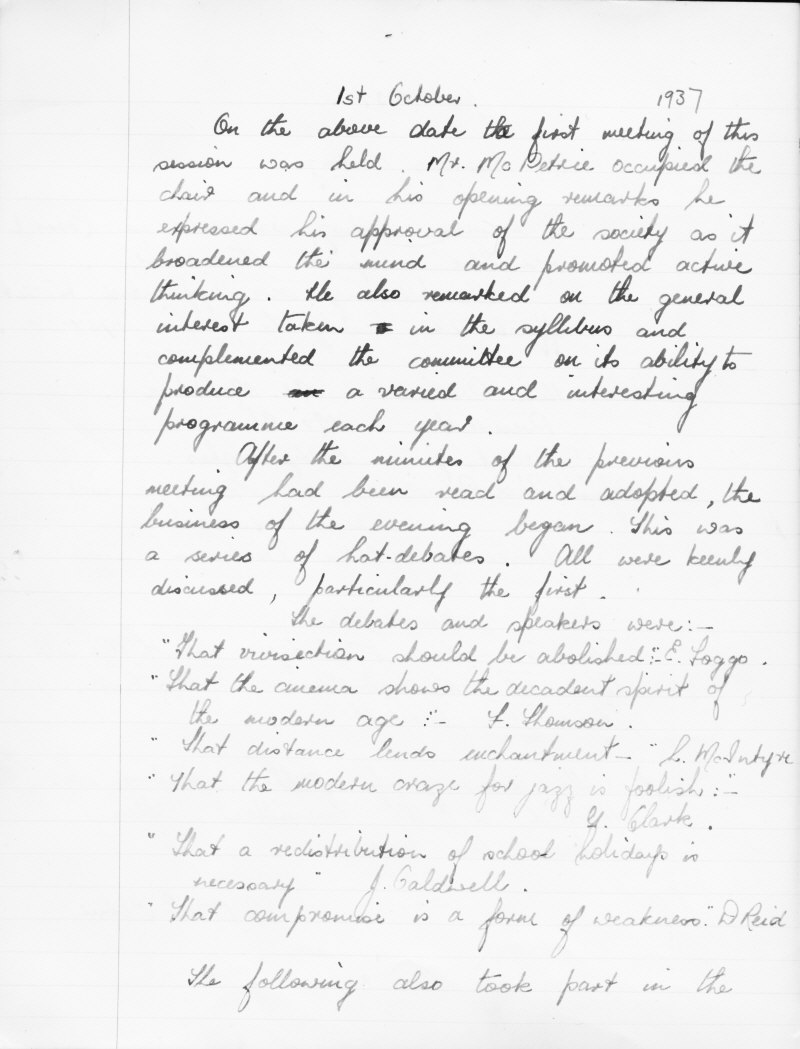 1st October. 1937
On the above date the first meeting of this
session was held. Mr. McPetrie occupied the
chair and in his opening remarks he
expressed his approval of the society as it
broadened the mind and promoted active
thinking. He also remarked on the general
interest taken in the syllibus and
complemented the committee on its ability to
produce a varied and interesting
programme each year.
After the minutes of the previous
meeting had been read and adopted, the
business of the evening began. This was
a series of hat-debates. All were keenly
discussed, particularly the first.
The debates and speakers were:-
"That vivisection should be abolished":- E.
"That the cinema shows the decadent spirit of
the modern age :"- Thomson.
"That distance lends enchantment-" McIntyre
"That the modern craze for jazz is foolish:"-
Clark.
"That a redistribution of school holidays is
necessary" J. Caldwell.
"That compromise is a form of weakness." D Reid
The following also took part in the